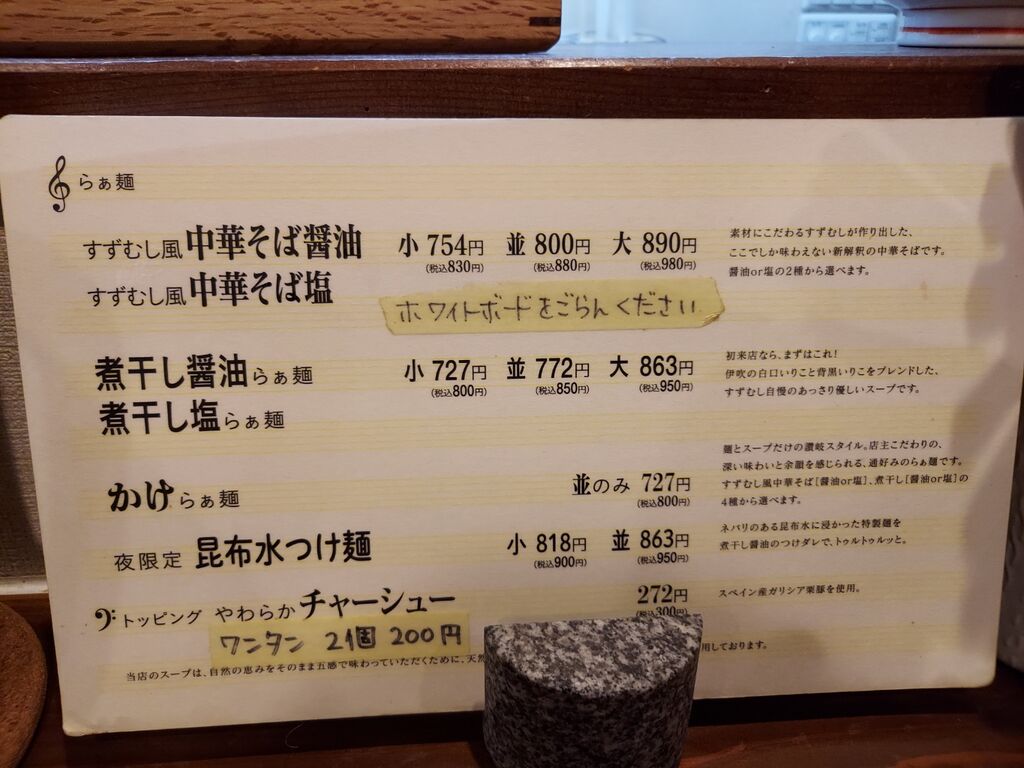 らぁ麺
すずむし風 中華そば醤油 小 754円 並 800円 大 890円
(税込830円) (税込880円) (税込980円)
素材にこだわるすずむしが作り出した、
ここでしか味わえない新解釈の中華そばです。
醤油or塩の2種から選べます。
すずむし風 中華そば塩
ホワイトボードをごらんください
煮干し醤油らぁ麺 小 727円 並 772円 大 863円
(税込800円) (税込850円) (税込950円)
初来店なら、まずはこれ!
伊吹の白口いりこと背黒いりこをブレンドした、
すずむし自慢のあっさり優しいスープです。
煮干し塩らぁ麺
かけらぁ麺 並のみ 727円
(税込800円)
麺とスープだけの讃岐スタイル。店主こだわりの、
深い味わいと余韻を感じられる、通好みのらぁ麺です。
すずむし風中華そば[醤油or塩]、煮干し[醤油or塩]の
4種から選べます。
夜限定 昆布水つけ麺 小 818円 並 863円
(税込900円) (税込950円)
ネバリのある昆布水に浸かった特製麺を
煮干し醤油のつけダレで、トゥルトゥルッと。
トッピング やわらかチャーシュー 272円
(税込300円)
スペイン産ガリシア栗豚を使用。
ワンタン 2個 200円
当店のスープは、自然の恵みをそのまま五感で味わっていただくために、天然 用しております。